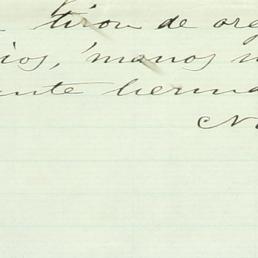 tiron de org
ios, 'manos
ente herma